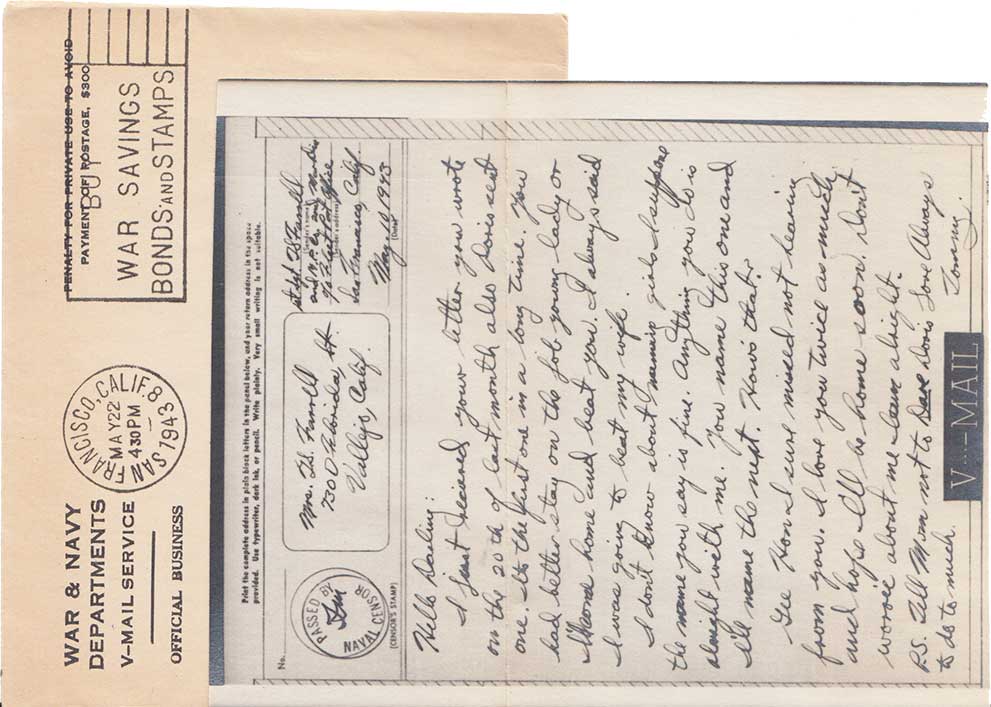 WAR & NAVY
DEPARTMENTS
V-MAIL SERVICE
OFFICIAL BUSINESS
SAN FRANCISCO, CALIF. 8
MAY 22
430 PM
1943
PENALTY FOR PRIVATE USE TO AVOID
PAYMENT OF POSTAGE, $300
BUY
WAR SAVINGS
BONDS AND STAMPS
Print the complete address in plain block letters in the panel below, and your return address in the space
provided. Use typewriter, dark ink, or pencil. Write plainly. Very small writing is not suitable.
No.
PASSED BY
NAVAL CENSOR
(CENSOR'S STAMP)
Mrs. T.S. Farrell
730 Florida St.
Vallejo, Calif.
st sgt T.S. Farrell
(Sender's name)
Fleet Post Office
(Sender's address)
San Francisco, Calif
May. 10 1943
(Date)
Hello Darling:
I just recieved your letter you wrote
on the 20th of last month also Doris sent
one. Its the first one in a long time. You
had better stay on the job young lady or
I'll come home and beat you. I always said
I was going to beat my wife.
I don't know about naming girls I suppose
the name you say is fine. Anything you do is
alright with me. You name this one and
I'll name the next. Hows that?
Gee Hon I sure missed not hearing
from you. I love you twice as much
and hope I'll be home soon. Don't
worrie about me I am alright.
P.S. Tell Mom not to Dare Doris Love Always
to do to much Tommy.
V---MAIL